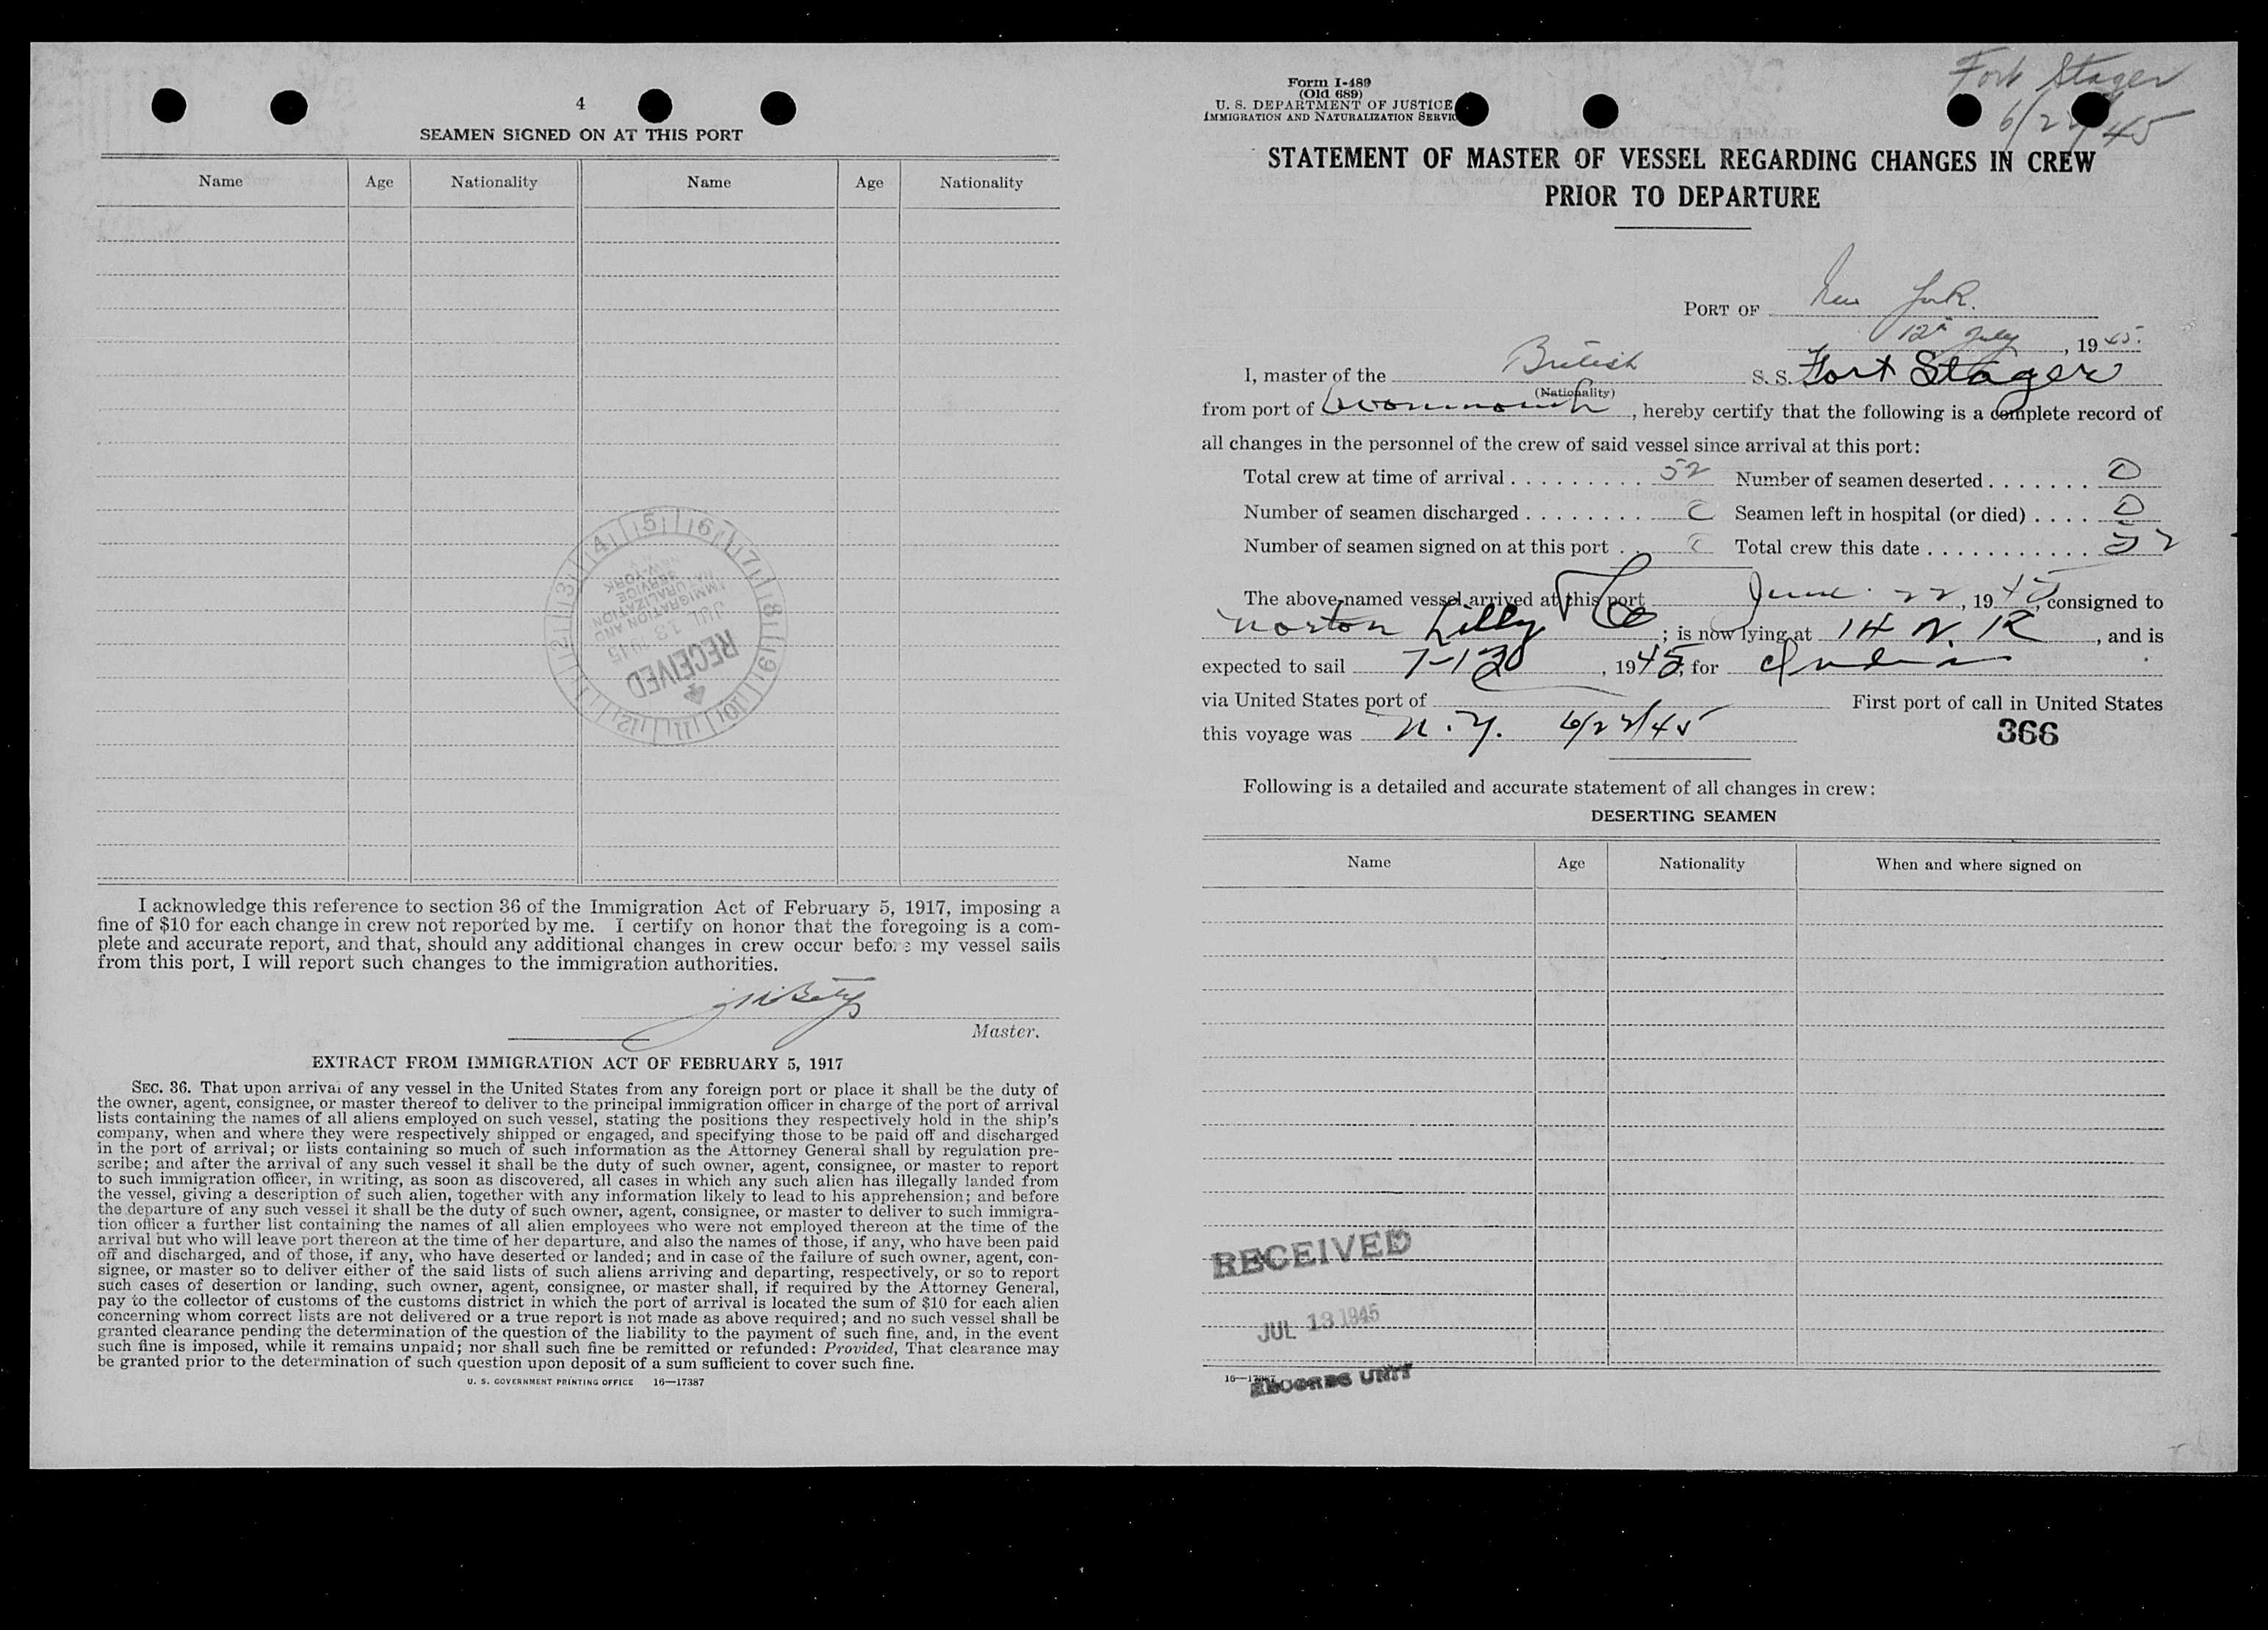 4
SEAMEN SIGNED ON AT THIS PORT
Name Age Nationality Name Age Nationality
5 6 7 8 9 10 11 12 1 2 3 4
IMMIGRATION AND
NATURALIZATION
SERVICE
NEW YORK
JUL 13 1945
RECEIVED
I acknowledge this reference to section 36 of the Immigration Act of February 5, 1917, imposing a
fine of $10 for each change in crew not reported by me. I certify on honor that the foregoing is a com-
plete and accurate report, and that, should any additional changes in crew occur before my vessel sails
from this port, I will report such changes to the immigration authorities.
Master.
EXTRACT FROM IMMIGRATION ACT OF FEBRUARY 5, 1917
SEC. 36. That upon arrival of any vessel in the United States from any foreign port or place it shall be the duty of
the owner, agent, consignee, or master thereof to deliver to the principal immigration officer in charge of the port of arrival
lists containing the names of all aliens employed on such vessel, stating the positions they respectively hold in the ship's
company, when and where they were respectively shipped or engaged, and specifying those to be paid off and discharged
in the port of arrival; or lists containing so much of such information as the Attorney General shall by regulation pre-
scribe; and after the arrival of any such vessel it shall be the duty of such owner, agent, consignee, or master to report
to such immigration officer, in writing, as soon as discovered, all cases in which any such alien has illegally landed from
the vessel, giving a description of such alien, together with any information likely to lead to his apprehension; and before
the departure of any such vessel it shall be the duty of such owner, agent, consignee, or master to deliver to such immigra-
tion officer a further list containing the names of all alien employees who were not employed thereon at the time of the
arrival but who will leave port thereon at the time of her departure, and also the names of those, if any, who have been paid
off and discharged, and of those, if any, who have deserted or landed; and in case of the failure of such owner, agent, con-
signee, or master so to deliver either of the said lists of such aliens arriving and departing, respectively, or so to report
such cases of desertion or landing, such owner, agent, consignee, or master shall, if required by the Attorney General,
pay to the collector of customs of the customs district in which the port of arrival is located the sum of $10 for each alien
concerning whom correct lists are not delivered or a true report is not made as above required; and no such vessel shall be
granted clearance pending the determination of the question of the liability to the payment of such fine, and, in the event
such fine is imposed, while it remains unpaid; nor shall such fine be remitted or refunded: Provided, That clearance may
be granted prior to the determination of such question upon deposit of a sum sufficient to cover such fine.
U. S. GOVERNMENT PRINTING OFFICE 16—17387
Fort Stager
6/22/45
Form I-489
(Old 689)
U. S. DEPARTMENT OF JUSTICE
IMMIGRATION AND NATURALIZATION SERVIC
STATEMENT OF MASTER OF VESSEL REGARDING CHANGES IN CREW
PRIOR TO DEPARTURE
PORT OF New York.
12th July, 1945.
I, master of the British S. S. Fort Stager
(Nationality)
from port of Avonmouth, hereby certify that the following is a complete record of
all changes in the personnel of the crew of said vessel since arrival at this port:
Total crew at time of arrival 52 Number of seamen deserted 0
Number of seamen discharged 0 Seamen left in hospital (or died) 0
Number of seamen signed on at this port 0 Total crew this date 52
The above-named vessel arrived at this port June 22, 1945, consigned to
Norton Lilly Co; is now lying at 14 N. R, and is
expected to sail 7-13, 1945, for India
via United States port of First port of call in United States
this voyage was N.Y. 6/22/45
366
Following is a detailed and accurate statement of all changes in crew:
DESERTING SEAMEN
Name Age Nationality When and where signed on
RECEIVED
JUL 13 1945
16—17387
RECORDS UNIT